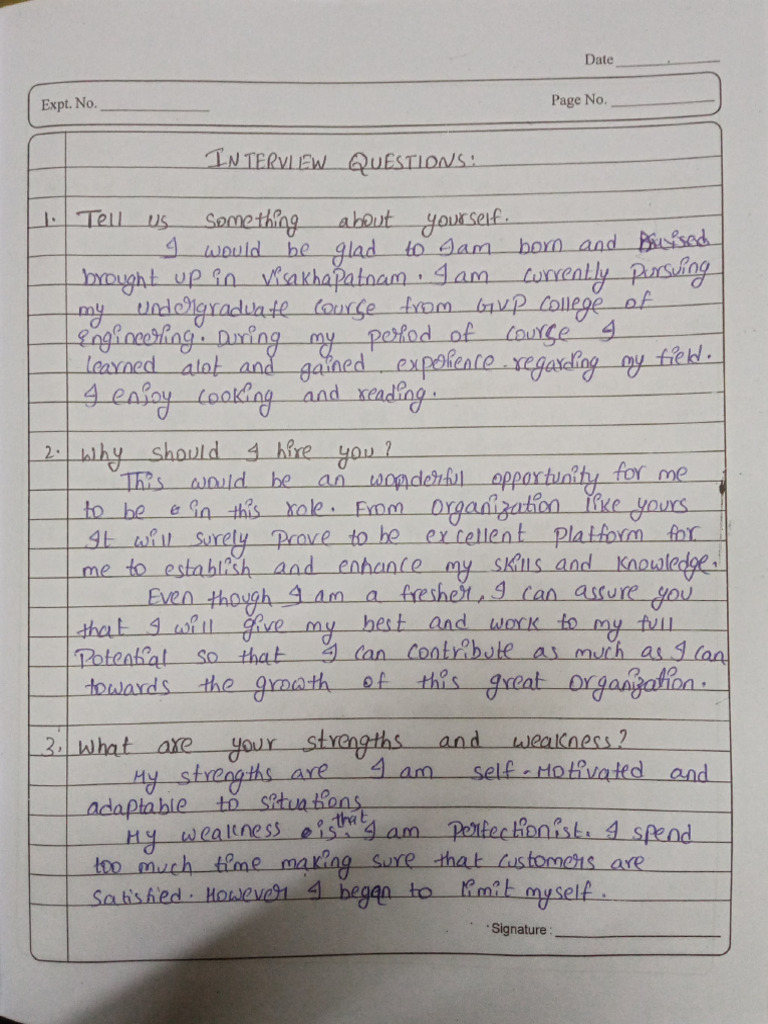 Date
Expt. No.
Page No.
INTERVIEW QUESTIONS:
1. Tell us something about yourself.
I would be glad to I am born and
brought up in Visakhapatnam. I am currently pursuing
my undergraduate course from GVP College of
Engineering. During my period of course I
learned alot and gained experience regarding my field.
I enjoy cooking and reading.
2. Why should I hire you?
This would be an wonderful opportunity for me
to be in this role. From Organization like yours
It will surely prove to be excellent platform for
me to establish and enhance my skills and knowledge.
Even though I am a fresher, I can assure you
that I will give my best and work to my full
potential so that I can contribute as much as I can
towards the growth of this great organization.
3. What are your strengths and weakness?
My strengths are I am self-motivated and
adaptable to situations
My weakness is that I am perfectionist. I spend
too much time making sure that customers are
satisfied. However I began to limit myself.
Signature :